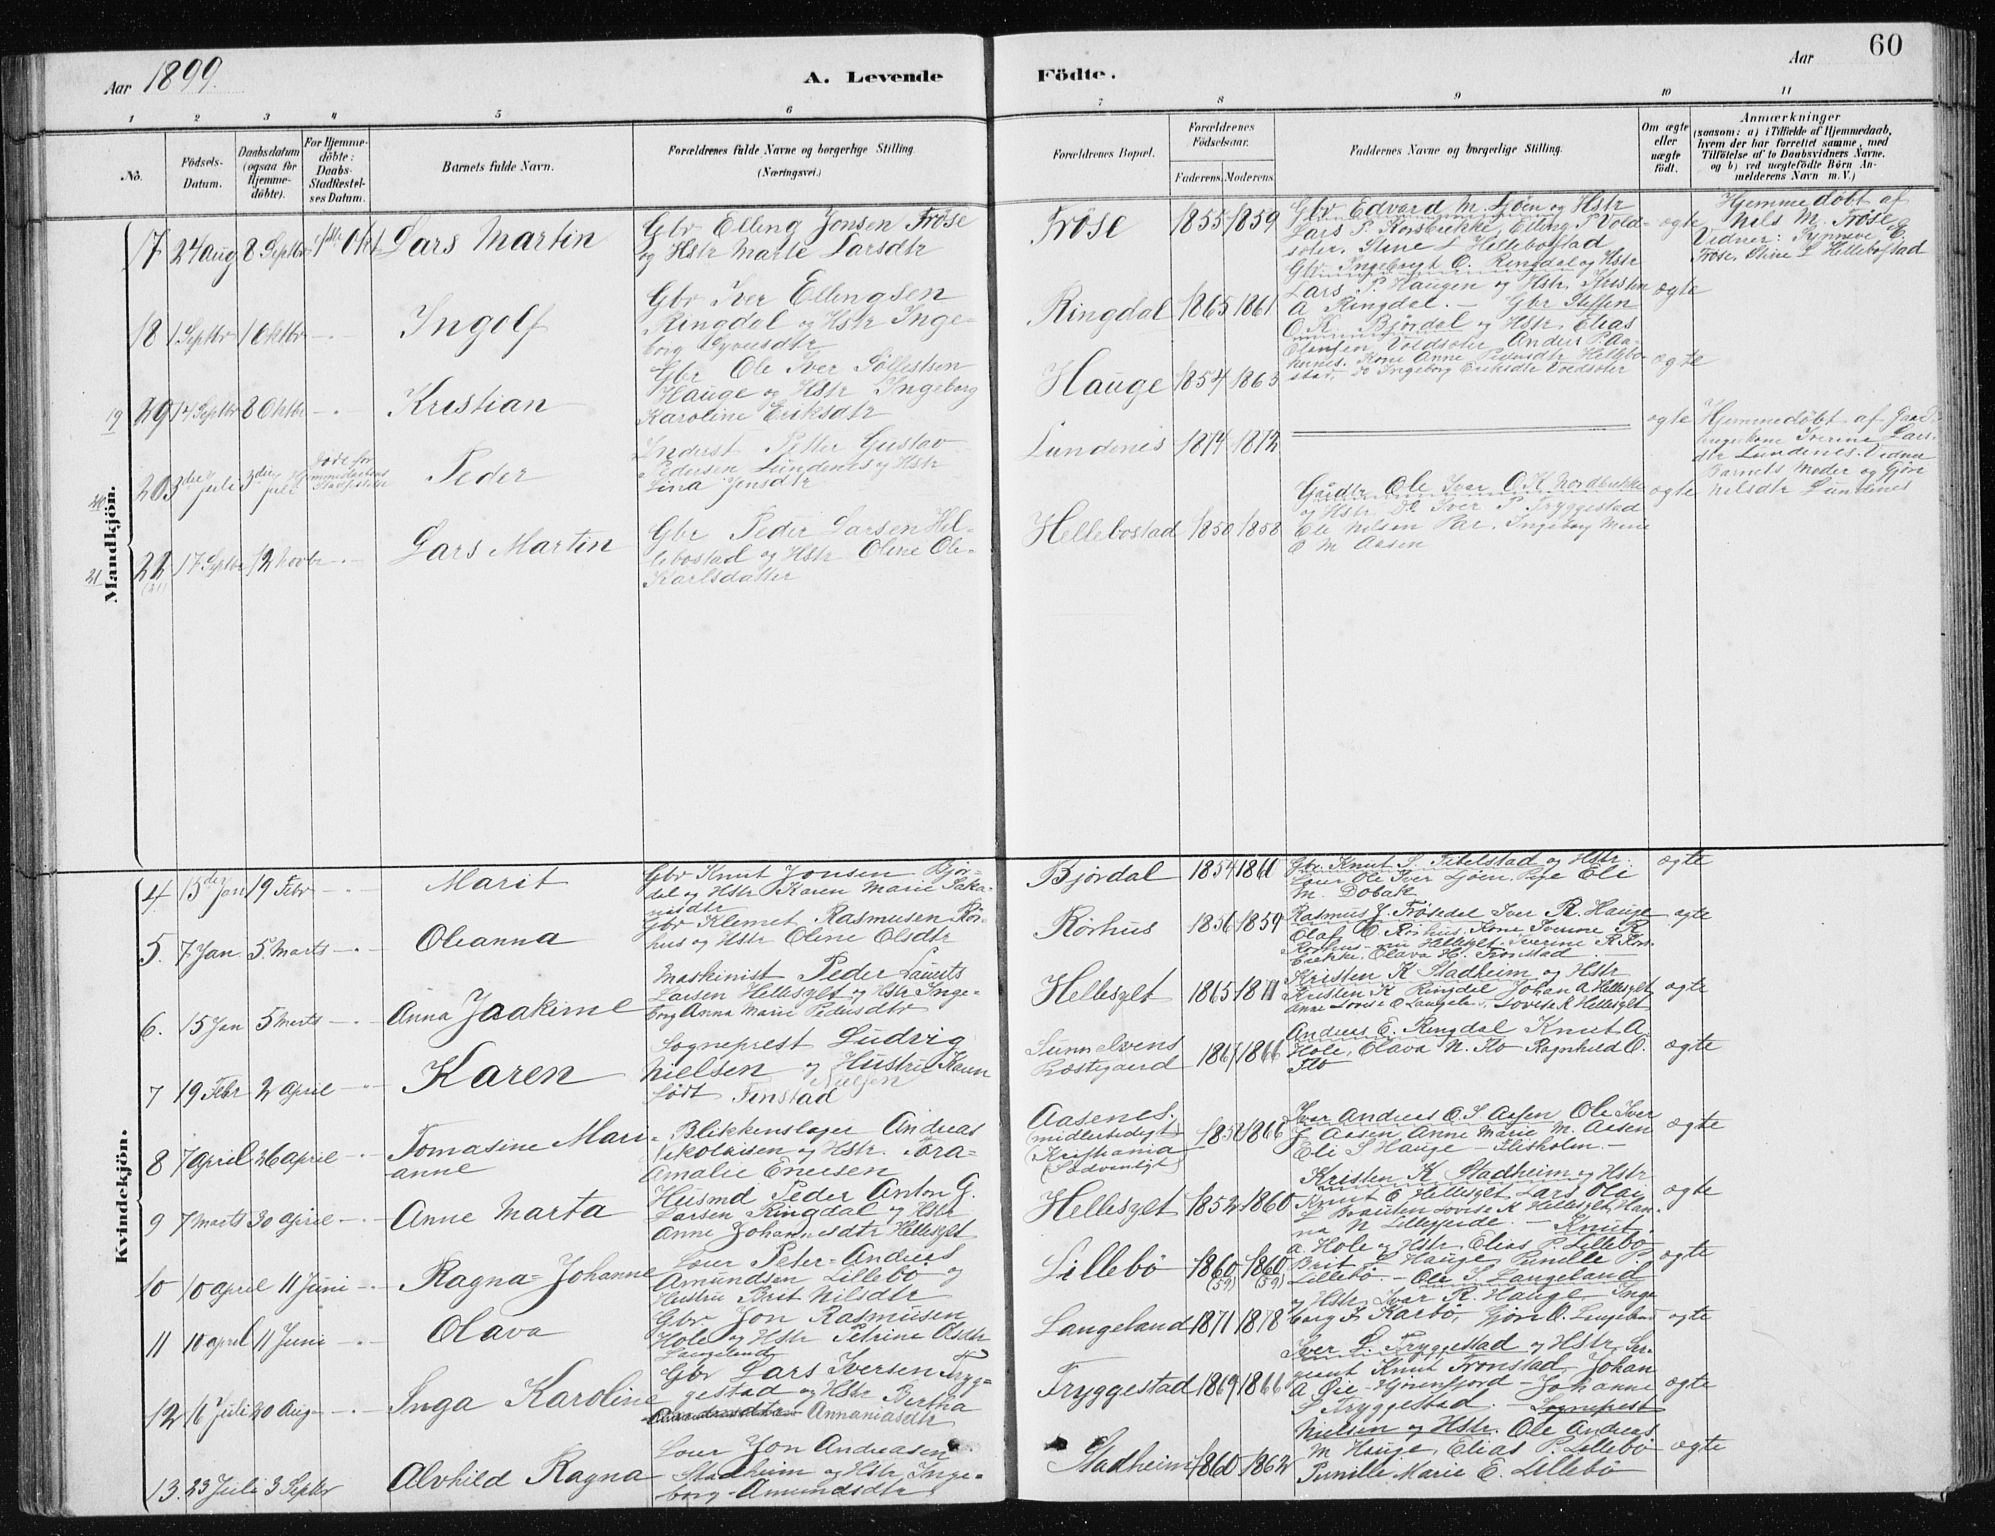 Aar 1899.
A. Levende Födte.
Aar 60
1 2 3 4 5 6 7 8 9 10 11
No.
Födsels-Datum.
Daabsdatum (ogsaa for Hjemme-döbte).
For Hjemme-döbte: Daabs-Stadfæstel-ses Datum.
Barnets fulde Navn.
Forældrenes fulde Navne og borgerlige Stilling. (Næringsvei.)
Forældrenes Bopæl.
Forældrenes Födselsaar.
Faderens. Moderens.
Faddernes Navne og borgerlige Stilling.
Om ægte eller uægte födt.
Anmærkninger (saasom: a) i Tilfælde af Hjemmedaab, hvem der har forrettet samme, med Tilföielse af to Daabsvidners Navne, og b) ved uægtefödte Börn An-melderens Navn m. V.)
Mandkjön.
17 24 Aug 8 Septbr 1ste Okt Lars Martin
Gbr Elling Jonsen Frøse
og Hstr Marte Larsdtr
Frøse 1855 1859
Gbr Edvard M. Ljøen og Hstr
Lars P. Korsbrekke, Elling P Vold-
seter, Stine L Hellebostad
ægte
Hjemmedøbt af
Nils M. Frøse
Vidner: Synneve E.
Frøse, Oline L Hellebostad
18 1 Septbr 1 Oktbr Ingolf
Gbr Iver Ellingsen
Ringdal og Hstr Inge-
borg
Ringdal 1865 1861
Gbr Ingebrigt O. Ringdal og Hstr
Lars P. Haugen og Hstr, Kristen
A Ringdal.
ægte
19 14 Septbr 8 Oktbr Kristian
Gbr Ole Iver
Hauge og Hstr Ingeborg
Karoline Eriksdtr
Hauge 1854 1863
Gbr Steffen
O. K. Bjørdal og Hstr, Elias
Olausen Voldseter, Anders P. Aa-
Kone Anne Pedersdtr Hellebo-
stad, Ingeborg Eriksdtr Voldseter
ægte
20 3die Juli 3die Juli Døde før Hjemmedaabens Stadfæstelse
Peder
Inderst Petter Gustav
Pedersen Lundenes og Hstr
Lina Jensdtr
Lundenes 1874 1872
ægte
Hjemmedøbt af Grad-
Iverine Lars-
dtr Lundenes. Vidner
Barnets Moder og Gjøre
Nilsdtr Lundenes
21 22 (21) 17 Septbr 12 Novbr Lars Martin
Gbr Peder Larsen Hel-
lebostad og Hstr Oline Ole-
Karlsdatter
Hellebostad 1850 1858
Ole Iver O. K. Nordbrekke
og Hstr. Iver P. Tryggestad
Ole Nilsen Par, Ingeborg Marie
O M Aasen
ægte
Kvindekjön.
4 15de Jan 19 Febr Marit
Gbr Knut Jonsen Bjør-
dal og Hstr Karen Marie Saka-
riasdtr
Bjørdal 1854 1861
Gbr. Knut S. Tibelstad og Hstr.
Ole Iver Ljøen, Pige Eli
M. Dobak
ægte
5. 7 Jan 5 Marts Oleanna
Gbr Klemet Rasmusen Rør-
hus og Hstr Oline Olsdtr
Rørhus 1856 1859
Rasmus J. Frøsedal Iver R. Hauge
Olaf O Rørhus, Kone Iverine K
Rørhus Hellesylt, Iverine R Kors-
brekke, Olava H. Tronstad
ægte
6. 15 Jan 5 Marts Anna Joakime
Maskinist Peder Laurits
Larsen Hellesylt og Hstr Inge-
borg Anna Marie Pedersdtr
Hellesylt 1865 1871
Kristen K Stadheim og Hstr
Kristen K Ringdal Johan A Hellesylt
Anne Lovise O Langeland, Lovise K Hellesylt
ægte
7 19 Febr 2 April Karen
Sogneprest Ludvig
Nielsen og Hustru Karen Nielsen
født Finstad
Sunnelvens
Præstegaard 1861 1866
Andreas E. Ringdal Knut A.
Hole, Olava N. Flo Ragnhild O.
Flo
ægte
8 7 April 26 April Tomasine Mari-
anne
Blikkenslager Andreas
Nikolaisen og Hstr. Tora
Amalie Enersen
Aasenes.
(midlertidigt)
Kristiania
(Sædvanligt) 1858 1866
Iver Andreas O. S. Aasen Ole Iver
J Aasen, Anne Marie M. Aasen
Eli S Hauge
ægte
9 7 Marts 30 April Anne Marta
Husmd Peder Anton G.
Larsen Ringdal og Hstr
Anne Johannesdtr Hellesylt
Hellesylt 1852 1860
Kristen K Stadheim og Hstr
Knut O Hellesylt, Lars Olai
L Lovise K Hellesylt, Han-
na N Lilleje
ægte
10 10 April 11 Juni Ragna Johanne
Peter Andreas
Amundsen Lillebø og
Hustru Brit Nilsdtr
Lillebø 1860 (59) 1860 (59)
Knut
A. Hole og Hstr, Elias P. Lillebø
Brit L Hauge, Pernille P
Lillebø.
ægte
11 10 April 11 Juni Olava
Gbr Jon Rasmusen
Hole og Hstr Petrine Olsdtr
Langeland
Langeland 1871 1878
Ole S. Langeland
og Hstr, Ivar R. Hauge, Inge-
borg J. Karbø, Gjøre O. Langeland
ægte
12 16 Juli 20 Aug Inga Karoline
Gbr Lars Iversen Tryg-
gestad og Hstr Bertha
Annaniasdtr
Tryggestad 1869 1866
Iver L. Tryggestad og Hstr, Ser-
geant Knut Tronstad, Johan
A Øie Hjørenfjord Johanne
L Tryggestad.
ægte
13. 23 Juli 3 Septbr Alvhild Ragna
Jon Andreasen
Stadheim og Hstr Inge-
borg Amundsdtr
Stadheim 1860 1862
Sogneprest
Nielsen og Hstr. Ole Andreas
M Hauge, Elias P. Lillebø
Pernille Marie E. Lillebø
ægte